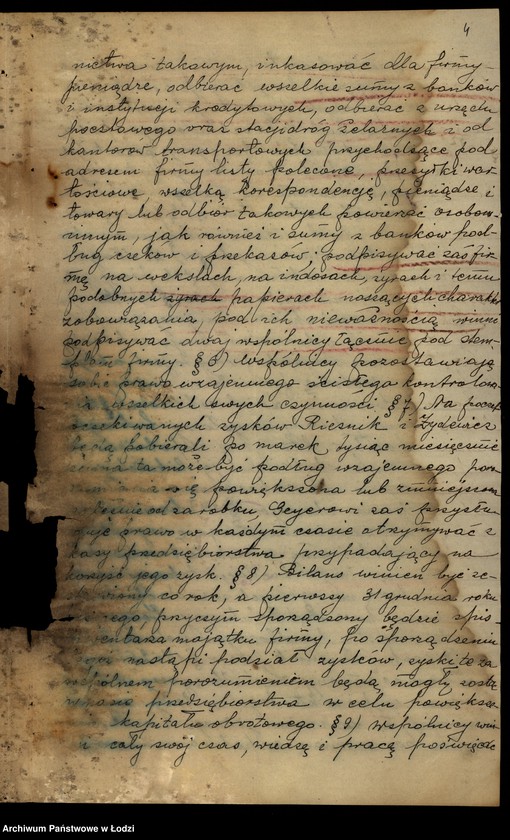 4
nictwa takowym, inkasować dla firmy
pieniądze, odbierać wszelkie sumy z banków
i instytucji kredytowych, odbierać z urzędu
pocztowego oraz stacji dróg żelaznych i od
kantorów transportowych przychodzące pod
adresem firmy listy polecone, przesyłki war-
tościowe, wszelką korespondencję, pieniądze i
towary lub odbiór takowych powierzać osobom
innym, jak również i sumy z banków pod-
ług czeków i przekazów; podpisywać zaś fir-
mę na wekslach, na indosach, żyrach i temu
podobnych żyrach papierach noszących charakter
zobowiązania, pod ich nieważnością winni
podpisywać dwaj wspólnicy łącznie pod stem-
plem firmy. § 6) Wspólnicy pozostawiają
sobie prawo wzajemnego ścisłego kontrolowa-
nia wszelkich swych czynności. § 7) Na poczet
oczekiwanych zysków Rieznik i Żydewicz
będą pobierali po marek tysiąc miesięcznie
suma ta może być podług wzajemnego poro-
zumienia się powiększona lub zmniejszona
zależnie od zarobku, Geyerowi zaś przysłu-
guje prawo w każdym czasie otrzymywać z
kasy przedsiębiorstwa przypadający na
korzyść jego zysk. § 8) Bilans winien być ze-
stawiony co rok, a pierwszy 31 grudnia roku
przyczym sporządzony będzie spis
inwentarza majątku firmy, po sporządzeniu
nastąpi podział zysków, zyski te za
wspólnem porozumieniem będą mogły zostać
przedsiębiorstwa w celu powiększe-
nia kapitału obrotowego. § 9) wspólnicy win-
ni cały swój czas, wiedzę i pracę poświęcać
Archiwum Państwowe w Łodzi